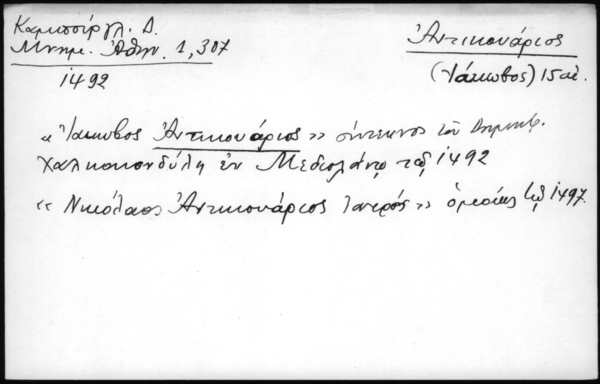 Καμπούργλ. Δ.
Μνημ. Ἀθην. 1,307
1492
Ἀντικουάριος
(Ἰάκωβος) 15 αἰ.
« Ἰάκωβος Ἀντικουάριος » σύντεκνος τοῦ Δημητρ.
Χαλκοκονδύλη ἐν Μεδιολάνῳ τῷ 1492
« Νικόλαος Ἀντικουάριος ἰατρός » ὁμοίως τῷ 1497.